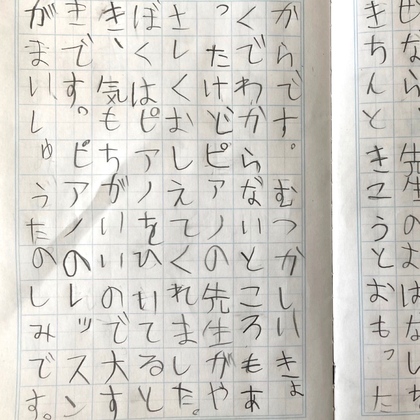 なら、先生のはなし
きちんときこうとおもった
からです。むつかしいきょ
くでわからないところもあ
ったけどピアノの先生がや
さしくおしえてくれました。
ぼくはピアノをひいてると
き、気もちがいいので大す
きです。ピアノのレッスン
がまいしゅうたのしみです。